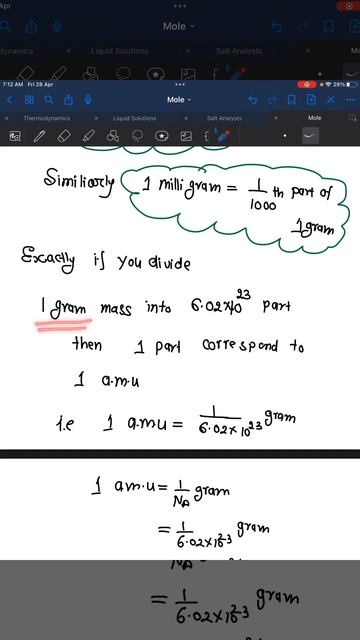 Apr
Mole
dynamics × Liquid Solutions × Salt Analysts ×
7:12 AM Fri 28 Apr 29%
Mole
× Thermodynamics × Liquid Solutions × Salt Analysts × Mole
Similiarly 1 milligram = 1/1000 th part of
1gram
Exactly if you divide
1 gram mass into 6.02×10^23 part
then 1 part correspond to
1 a.m.u
i.e 1 a.m.u = 1/6.02×10^23 gram
1 am.u = 1/NA gram
= 1/6.02×10^23 gram
NA
= 1/6.02×10^23 gram